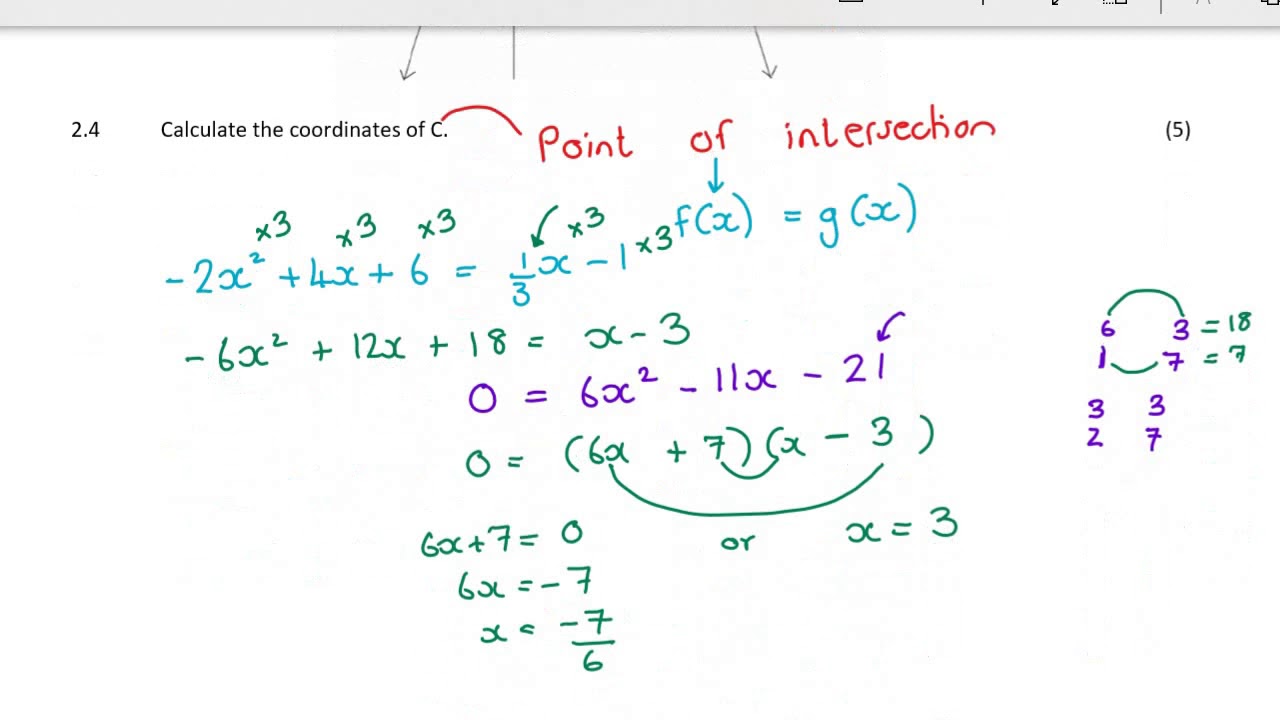 2.4 Calculate the coordinates of C. (5)
Point of intersection
f(x) = g(x)
×3 ×3 ×3 ×3 ×3
-2x² + 4x + 6 = 1/3 x - 1
-6x² + 12x + 18 = x - 3
0 = 6x² - 11x - 21
0 = (6x + 7)(x - 3)
6x + 7 = 0 or x = 3
6x = -7
x = -7/6
6 3 = 18
1 7 = 7
3 3
2 7